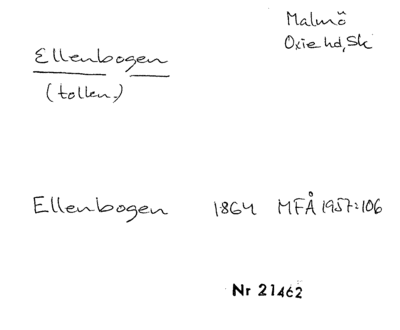 Malmö
Oxie hd, Sk
Ellenbogen
(tollen-)
Ellenbogen 1864 MFÅ 1957:106
Nr 21462